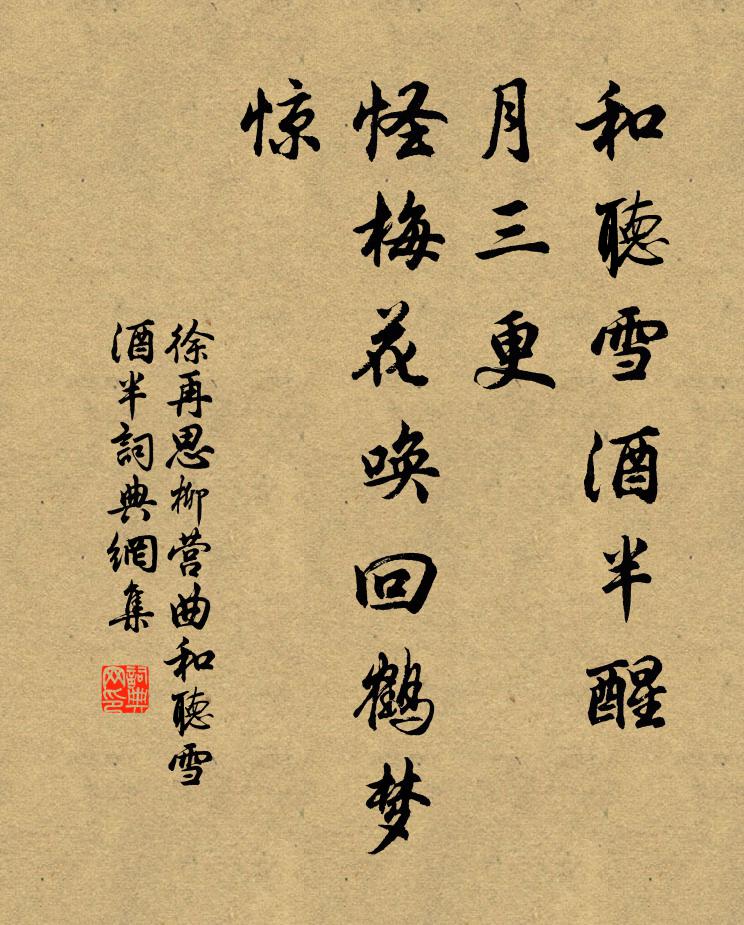 和聽雪酒半醒
月三更
怪梅花唤回鹤梦
惊
徐再思柳营曲和聽雪
酒半詞典網集
詞典网印